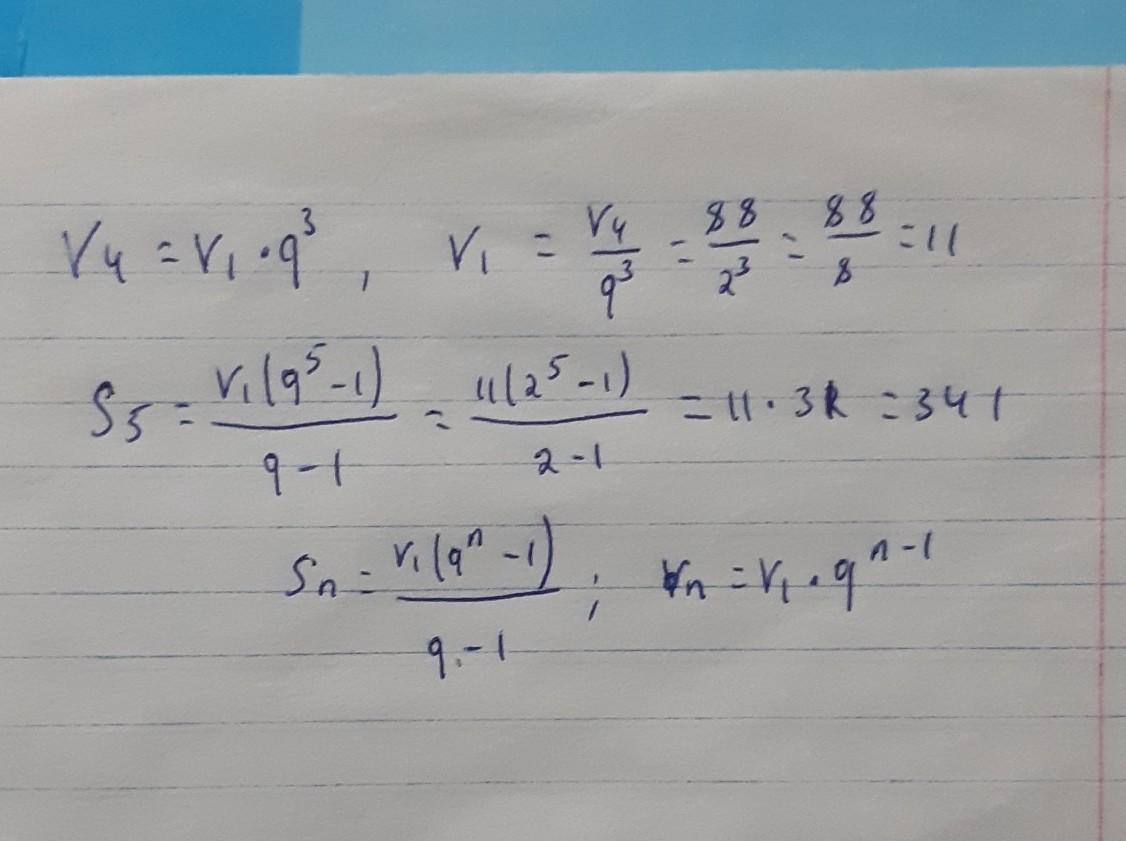 V₄ = V₁ · q³, V₁ = V₄/q³ = 88/2³ = 88/8 = 11
S₅ = V₁(q⁵-1)/(q-1) = 11(2⁵-1)/(2-1) = 11 · 31 = 341
Sₙ = V₁(qⁿ-1)/(q-1); Vₙ = V₁ · qⁿ⁻¹